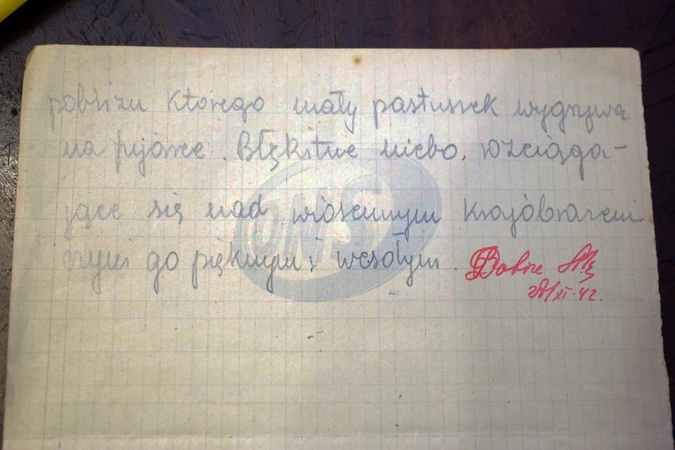 pobliżu którego mały pastuszek wygrywa
na fujarce. Błękitne niebo, rozciąga-
jące się nad wiosennym krajobrazem
czyni go pięknym i wesołym. Dobrze
XI.42.
OWS